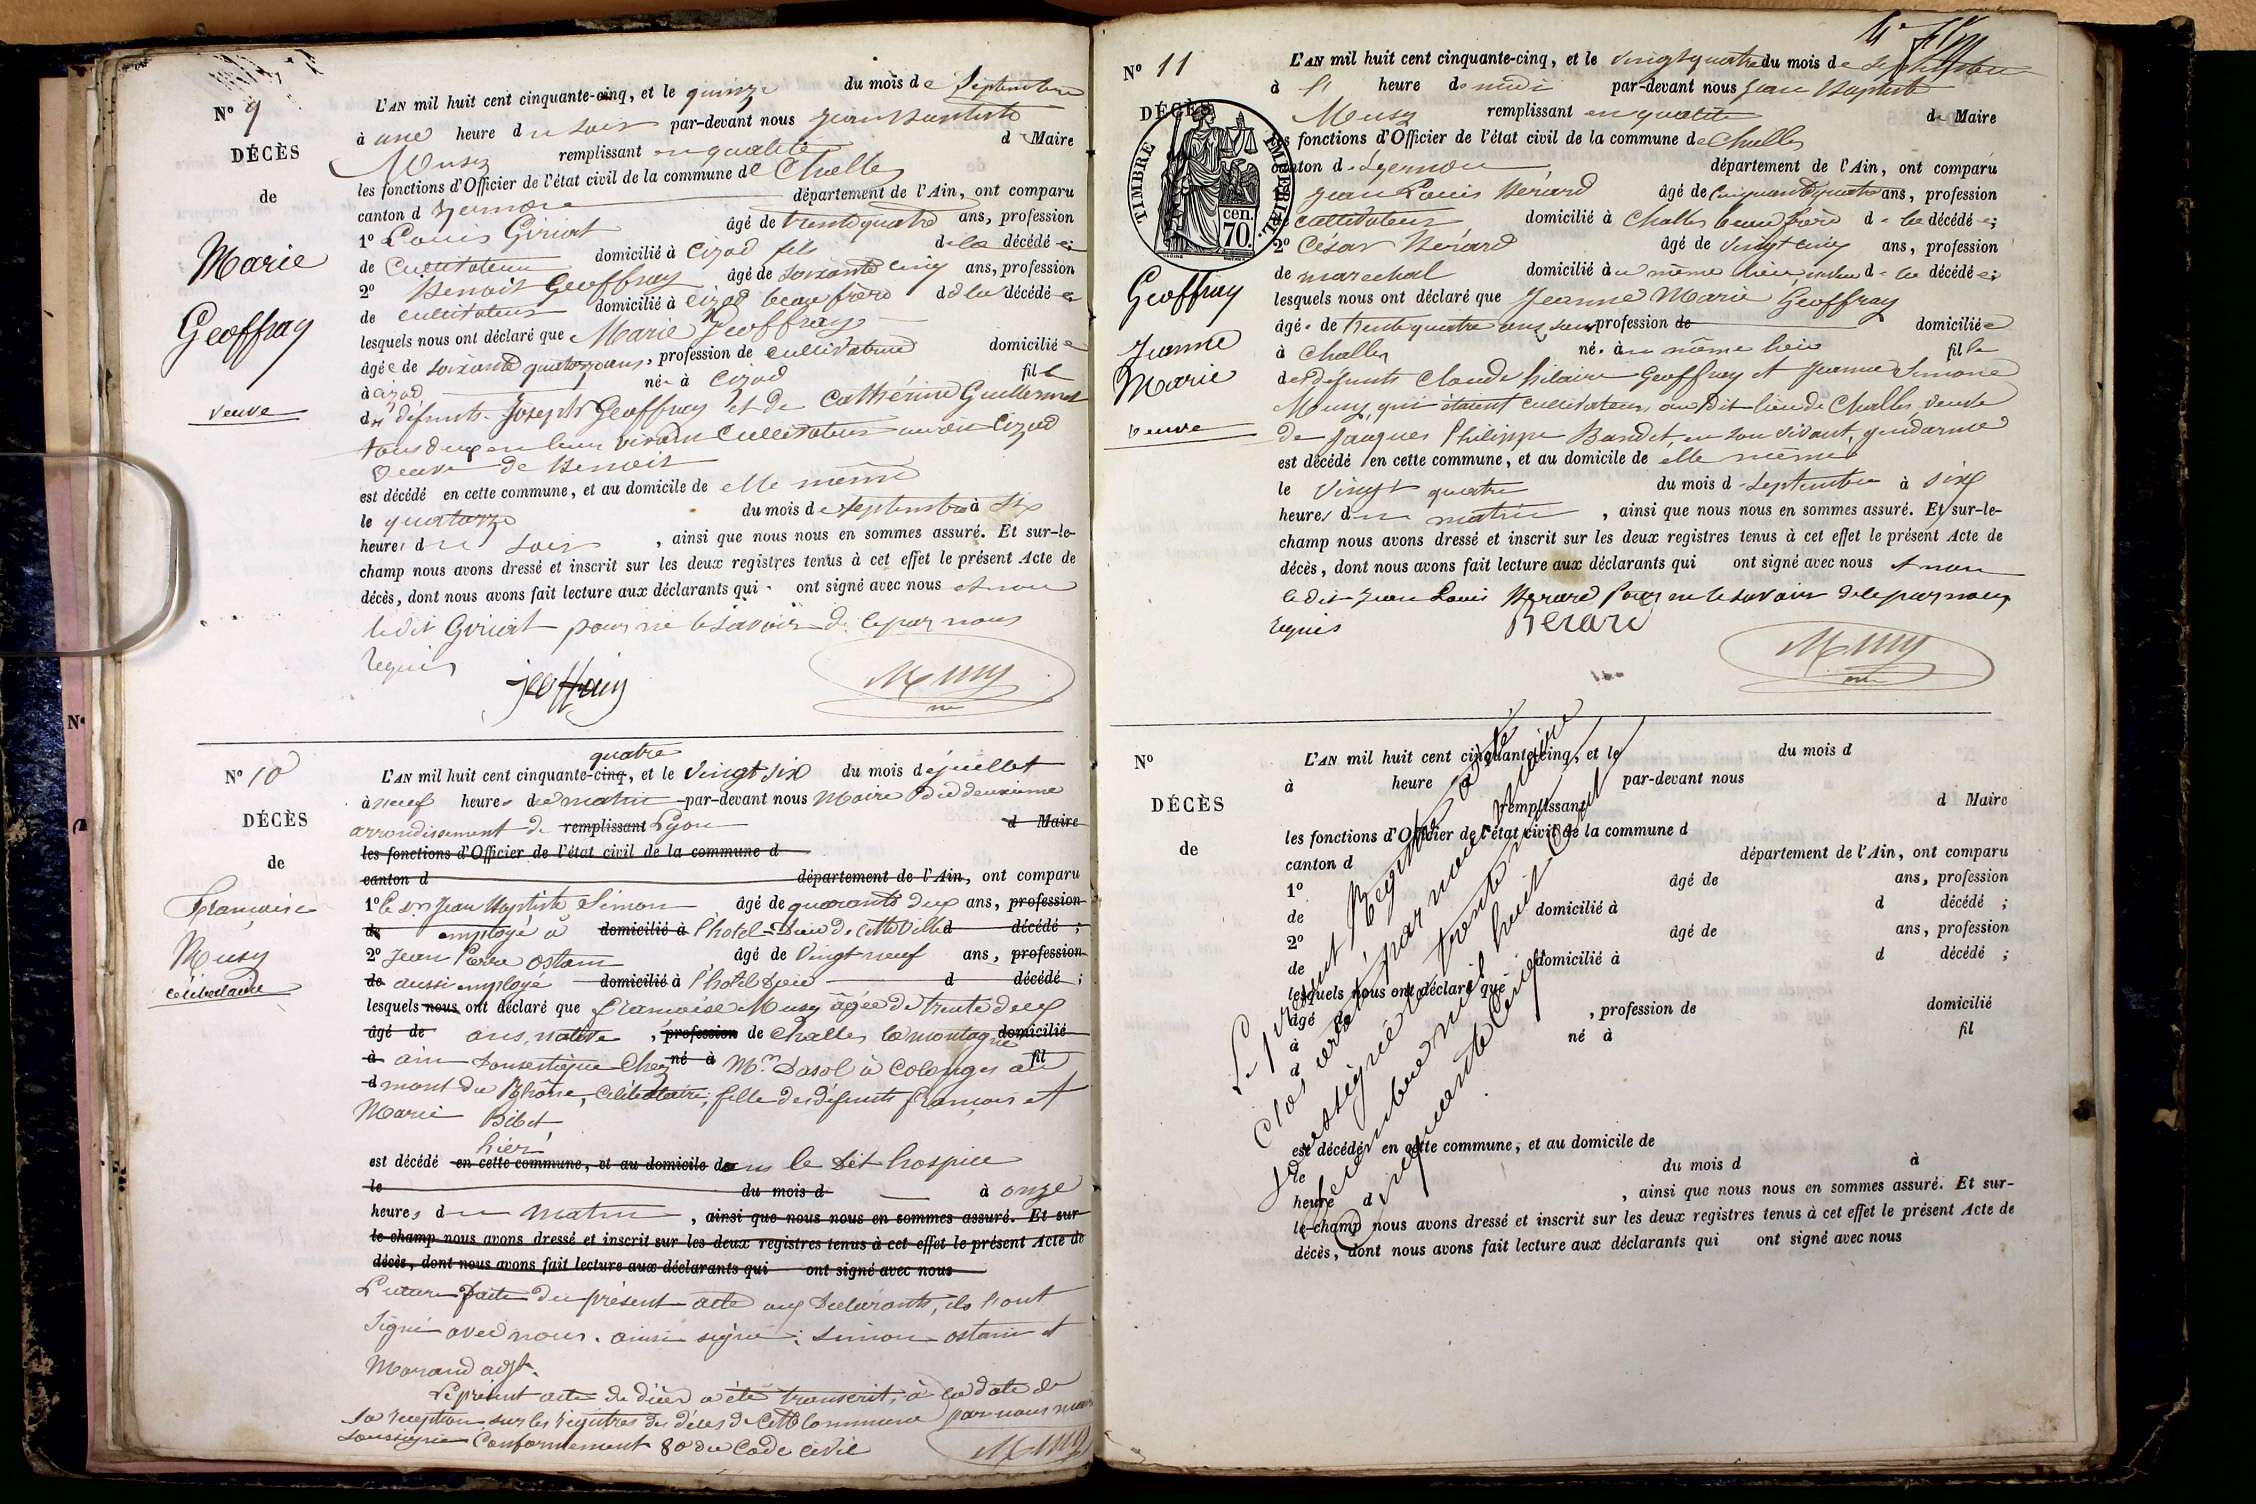 Nº 9
DÉCÈS
de
Marie
Geoffray
veuve
L'AN mil huit cent cinquante-cinq, et le quinze du mois de Septembre
à une heure du soir par-devant nous Jean Baptiste
Musy remplissant en qualité de Maire
les fonctions d'Officier de l'état civil de la commune de Challes
canton d département de l'Ain, ont comparu
1º Louis Girint âgé de trente quatre ans, profession
de Cultivateur domicilié à Cizod fils de la décédée;
2º Benoit Geoffray âgé de soixante cinq ans, profession
de cultivateur domicilié à Cizod beau frère de la décédée
lesquels nous ont déclaré que Marie Geoffray
âgée de soixante quatorze ans, profession de cultivatrice domiciliée
à Cizod née à Cizod fille
des défunts Joseph Geoffray et de Catherine Guillermet
tous deux en leur vivant Cultivateurs audit Cizod
veuve de Benoit
est décédé en cette commune, et au domicile de elle même
le quatorze du mois de septembre à six
heures du soir, ainsi que nous nous en sommes assuré. Et sur-le-
champ nous avons dressé et inscrit sur les deux registres tenus à cet effet le présent Acte de
décès, dont nous avons fait lecture aux déclarants qui ont signé avec nous et non
ledit Girint pour ne le savoir de ce par nous
requis
Geoffray Musy
Nº 10
DÉCÈS
de
Françoise
Musy
célibataire
quatre
L'AN mil huit cent cinquante-cinq, et le vingt six du mois de juillet
à neuf heures du matin par-devant nous Maire du deuxième
arrondissement de remplissant Lyon d Maire
les fonctions d'Officier de l'état civil de la commune d
canton d département de l'Ain, ont comparu
1º le sr Jean Baptiste Simon âgé de quarante deux ans, profession
de employé à domicilié à l'hotel Dieu de cette ville d décédé ;
2º Jean Pierre Ostam âgé de vingt neuf ans, profession
de aussi employé domicilié à l'hotel Dieu d décédé ;
lesquels nous ont déclaré que Françoise Musy âgée de trente deux
âgé de ans, native, profession de Challes la montagne domicilié
à ain domestique chez né à Mr Dasol à Colonges au fil
d mont du Rhône, célibataire, fille des défunts François et
Marie Bibet
hier
est décédé en cette commune, et au domicile de dans le dit hospice
le du mois d à onze
heures du matin, ainsi que nous nous en sommes assuré. Et sur
le-champ nous avons dressé et inscrit sur les deux registres tenus à cet effet le présent Acte de
décès, dont nous avons fait lecture aux déclarants qui ont signé avec nous
Lecture faite du présent acte aux déclarants, ils l'ont
signé avec nous. ainsi signé : Simon Ostam et
Morand adjt.
Le présent acte de décès a été transcrit, à la date de
sa réception sur les registres des décès de cette Commune par nous maire
soussigné Conformement 80 du Code civil
Musy
Nº 11
DÉCÈS
TIMBRE IMPÉRIAL
cen.
70.
Geoffray
Jeanne
Marie
veuve
L'AN mil huit cent cinquante-cinq, et le vingt quatre du mois de septembre
à heure de midi par-devant nous Jean Baptiste
Musy remplissant en qualité de Maire
les fonctions d'Officier de l'état civil de la commune de Challes
canton d'Izernore département de l'Ain, ont comparu
1º Jean Louis Bérard âgé de cinquante quatre ans, profession
de cultivateur domicilié à Challes beau frère de la décédée;
2º César Bérard âgé de vingt cinq ans, profession
de marechal domicilié au même lieu de la décédée;
lesquels nous ont déclaré que Jeanne Marie Geoffray
âgée de trente quatre ans sans profession de domiciliée
à Challes née au même lieu fille
des défunts Claude hilaire Geoffray et Jeanne Simone
Musy, qui étaient cultivateurs au dit lieu de Challes, veuve
de Jacques Philippe Bandet, en son vivant, gendarme
est décédé en cette commune, et au domicile de elle même
le vingt quatre du mois de septembre à six
heures du matin, ainsi que nous nous en sommes assuré. Et sur-le-
champ nous avons dressé et inscrit sur les deux registres tenus à cet effet le présent Acte de
décès, dont nous avons fait lecture aux déclarants qui ont signé avec nous et non
ledit Jean Louis Berard pour ne le savoir de ce par nous
requis
Berard
Musy
Nº
DÉCÈS
de
L'AN mil huit cent cinquante-cinq, et le du mois d
à heure d par-devant nous
remplissant d Maire
les fonctions d'Officier de l'état civil de la commune d
canton d département de l'Ain, ont comparu
1º âgé de ans, profession
de domicilié à d décédé ;
2º âgé de ans, profession
de domicilié à d décédé ;
lesquels nous ont déclaré que
âgé de , profession de domicilié
à né à fil
d
est décédé en cette commune, et au domicile de
le du mois d à
heure d , ainsi que nous nous en sommes assuré. Et sur-
le-champ nous avons dressé et inscrit sur les deux registres tenus à cet effet le présent Acte de
décès, dont nous avons fait lecture aux déclarants qui ont signé avec nous
Le présent Registre a été
Clos arrêté par nous Maire
soussigné le trente un
Décembre mil huit Cent
Cinquante Cinq